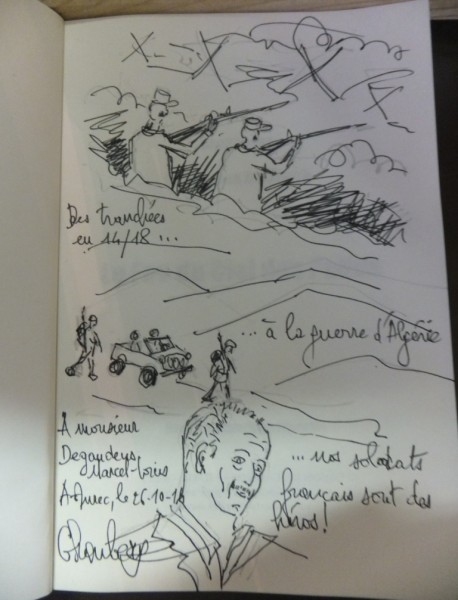 Des tranchées
en 14/18 ...
... à la guerre d'Algérie
À monsieur
Degandeys
Marcel-Loris
le 26-10-18
... nos soldats
français sont des
héros!